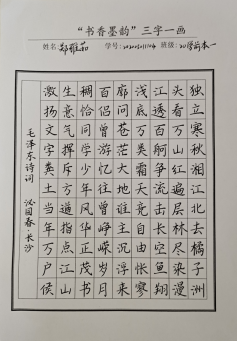 “书香墨韵”三字一画
姓名: 学号: 班级:20学前本一
独立寒秋湘江北去橘子洲
头看万山红遍层林尽染漫
江透百舸争流击长空鱼翔
浅底万类霜天竞自由怅寥
廓问苍茫大地谁主沉浮来
百侣曾游忆往峥嵘岁月
稠恰同学少年风华正茂书
生意气挥斥方遒指点江山
激扬文字粪土当年万户侯
毛泽东诗词 沁园春 长沙